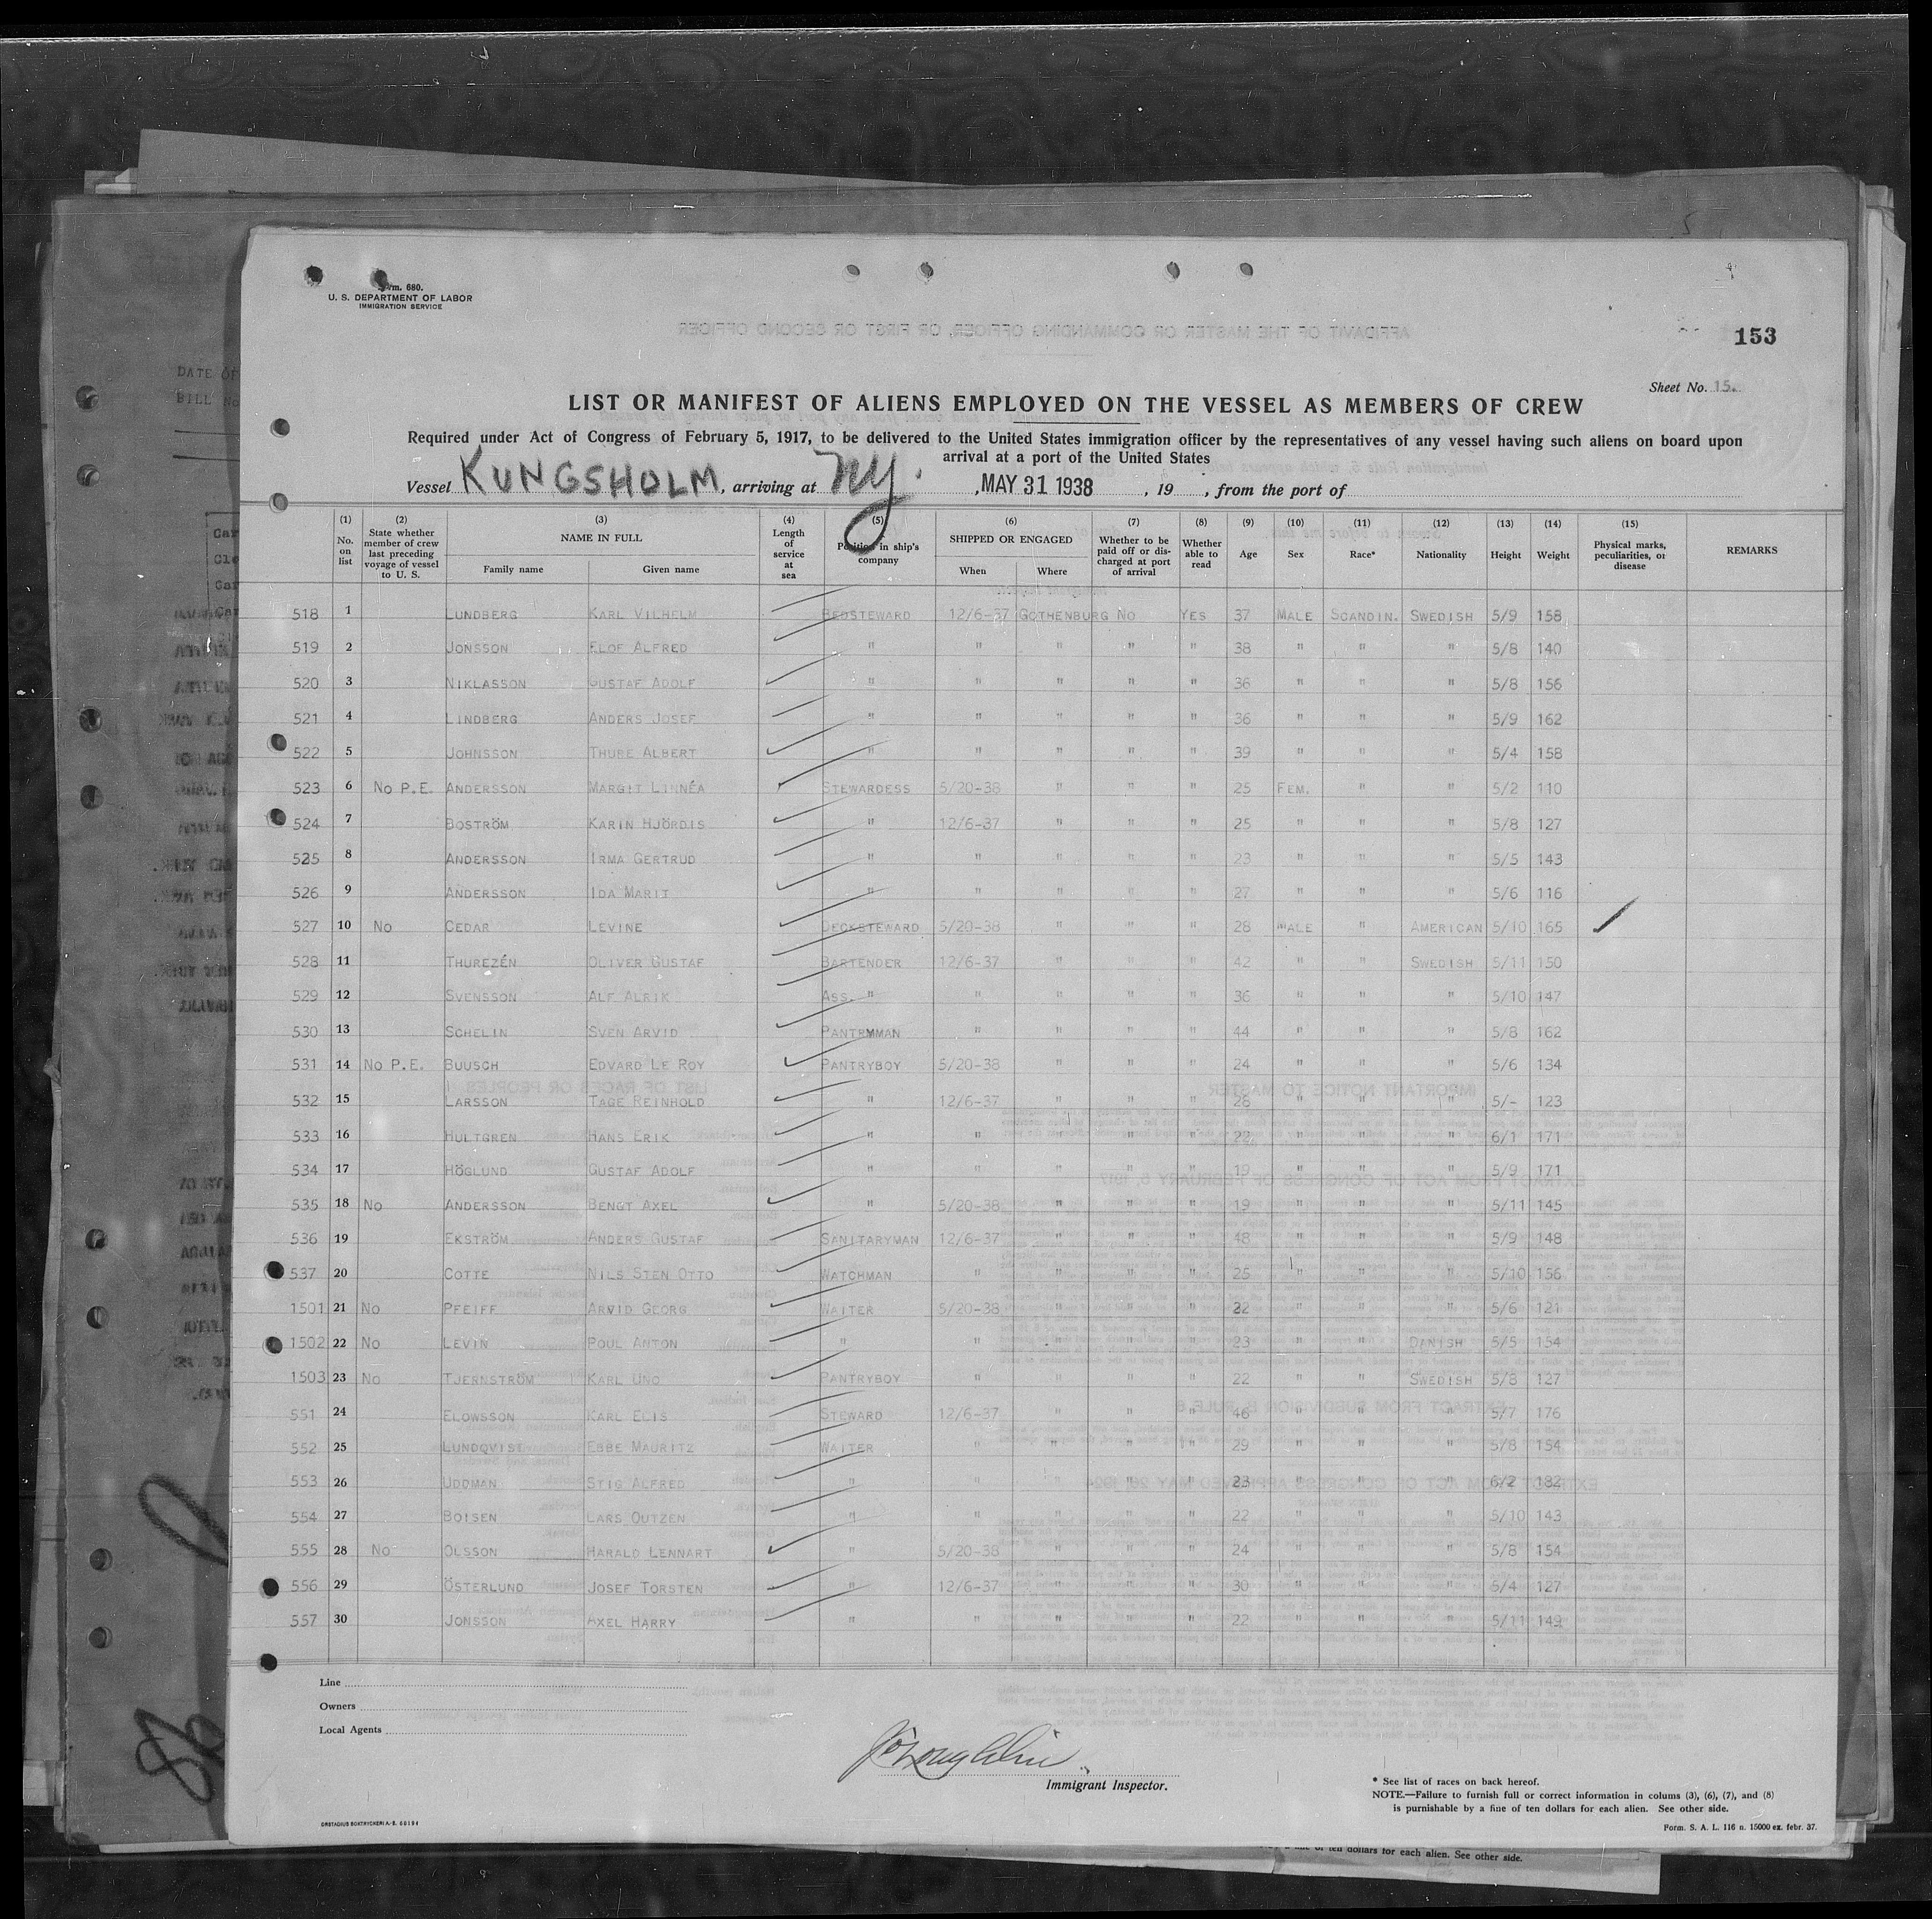 Form. 680.
U. S. DEPARTMENT OF LABOR
IMMIGRATION SERVICE
153
Sheet No. 15.
LIST OR MANIFEST OF ALIENS EMPLOYED ON THE VESSEL AS MEMBERS OF CREW
Required under Act of Congress of February 5, 1917, to be delivered to the United States immigration officer by the representatives of any vessel having such aliens on board upon
arrival at a port of the United States
Vessel KUNGSHOLM, arriving at NY. , MAY 31 1938 , 19 , from the port of
(1) No. on list (2) State whether member of crew last preceding voyage of vessel to U. S. (3) NAME IN FULL Family name Given name (4) Length of service at sea (5) Position in ship's company (6) SHIPPED OR ENGAGED When Where (7) Whether to be paid off or discharged at port of arrival (8) Whether able to read (9) Age (10) Sex (11) Race* (12) Nationality (13) Height (14) Weight (15) Physical marks, peculiarities, or disease REMARKS
518 1 LUNDBERG KARL VILHELM BEDSTEWARD 12/6-37 GOTHENBURG NO YES 37 MALE SCANDIN. SWEDISH 5/9 158
519 2 JONSSON ELOF ALFRED " " " " " 38 " " " 5/8 140
520 3 NIKLASSON GUSTAF ADOLF " " " " " 36 " " " 5/8 156
521 4 LINDBERG ANDERS JOSEF " " " " " 36 " " " 5/9 162
522 5 JOHNSSON THURE ALBERT " " " " " 39 " " " 5/4 158
523 6 No P.E. ANDERSSON MARGIT LINNÉA STEWARDESS 5/20-38 " " " 25 FEM. " " 5/2 110
524 7 BOSTRÖM KARIN HJÖRDIS " 12/6-37 " " " 25 " " " 5/8 127
525 8 ANDERSSON IRMA GERTRUD " " " " " 23 " " " 5/5 143
526 9 ANDERSSON IDA MARIT " " " " " 27 " " " 5/6 116
527 10 No CEDAR LEVINE DECKSTEWARD 5/20-38 " " " 28 MALE " AMERICAN 5/10 165
528 11 THUREZÉN OLIVER GUSTAF BARTENDER 12/6-37 " " " 42 " " SWEDISH 5/11 150
529 12 SVENSSON ALF ALRIK ASS. " " " " " 36 " " " 5/10 147
530 13 SCHELIN SVEN ARVID PANTRYMAN " " " " 44 " " " 5/8 162
531 14 No P.E. BUUSCH EDVARD LE ROY PANTRYBOY 5/20-38 " " " 24 " " " 5/6 134
532 15 LARSSON TAGE REINHOLD " 12/6-37 " " " 28 " " " 5/- 123
533 16 HULTGREN HANS ERIK " " " " " 22 " " " 6/1 171
534 17 HÖGLUND GUSTAF ADOLF " " " " " 19 " " " 5/9 171
535 18 No ANDERSSON BENGT AXEL " 5/20-38 " " " 19 " " " 5/11 145
536 19 EKSTRÖM ANDERS GUSTAF SANITARYMAN 12/6-37 " " " 48 " " " 5/9 148
537 20 COTTE NILS STEN OTTO WATCHMAN " " " " 25 " " " 5/10 156
1501 21 No PFEIFF ARVID GEORG WAITER 5/20-38 " " " 22 " " " 5/6 121
1502 22 No LEVIN POUL ANTON " " " " " 23 " " DANISH 5/5 154
1503 23 No TJERNSTRÖM KARL UNO PANTRYBOY " " " " 22 " " SWEDISH 5/8 127
551 24 ELOWSSON KARL ELIS STEWARD 12/6-37 " " " 46 " " " 5/7 176
552 25 LUNDQVIST EBBE MAURITZ WAITER " " " " 29 " " " 5/8 154
553 26 UDDMAN STIG ALFRED " " " " " 23 " " " 6/2 182
554 27 BOISEN LARS OUTZEN " " " " " 22 " " " 5/10 143
555 28 No OLSSON HARALD LENNART " 5/20-38 " " " 24 " " " 5/8 154
556 29 ÖSTERLUND JOSEF TORSTEN " 12/6-37 " " " 30 " " " 5/4 127
557 30 JONSSON AXEL HARRY " " " " " 22 " " " 5/11 149
Line
Owners
Local Agents
Immigrant Inspector.
* See list of races on back hereof.
NOTE.—Failure to furnish full or correct information in colums (3), (6), (7), and (8)
is punishable by a fine of ten dollars for each alien. See other side.
Form. S. A. L. 116 n. 15000 ex. febr. 37.
of ten dollars for each alien. See other side.